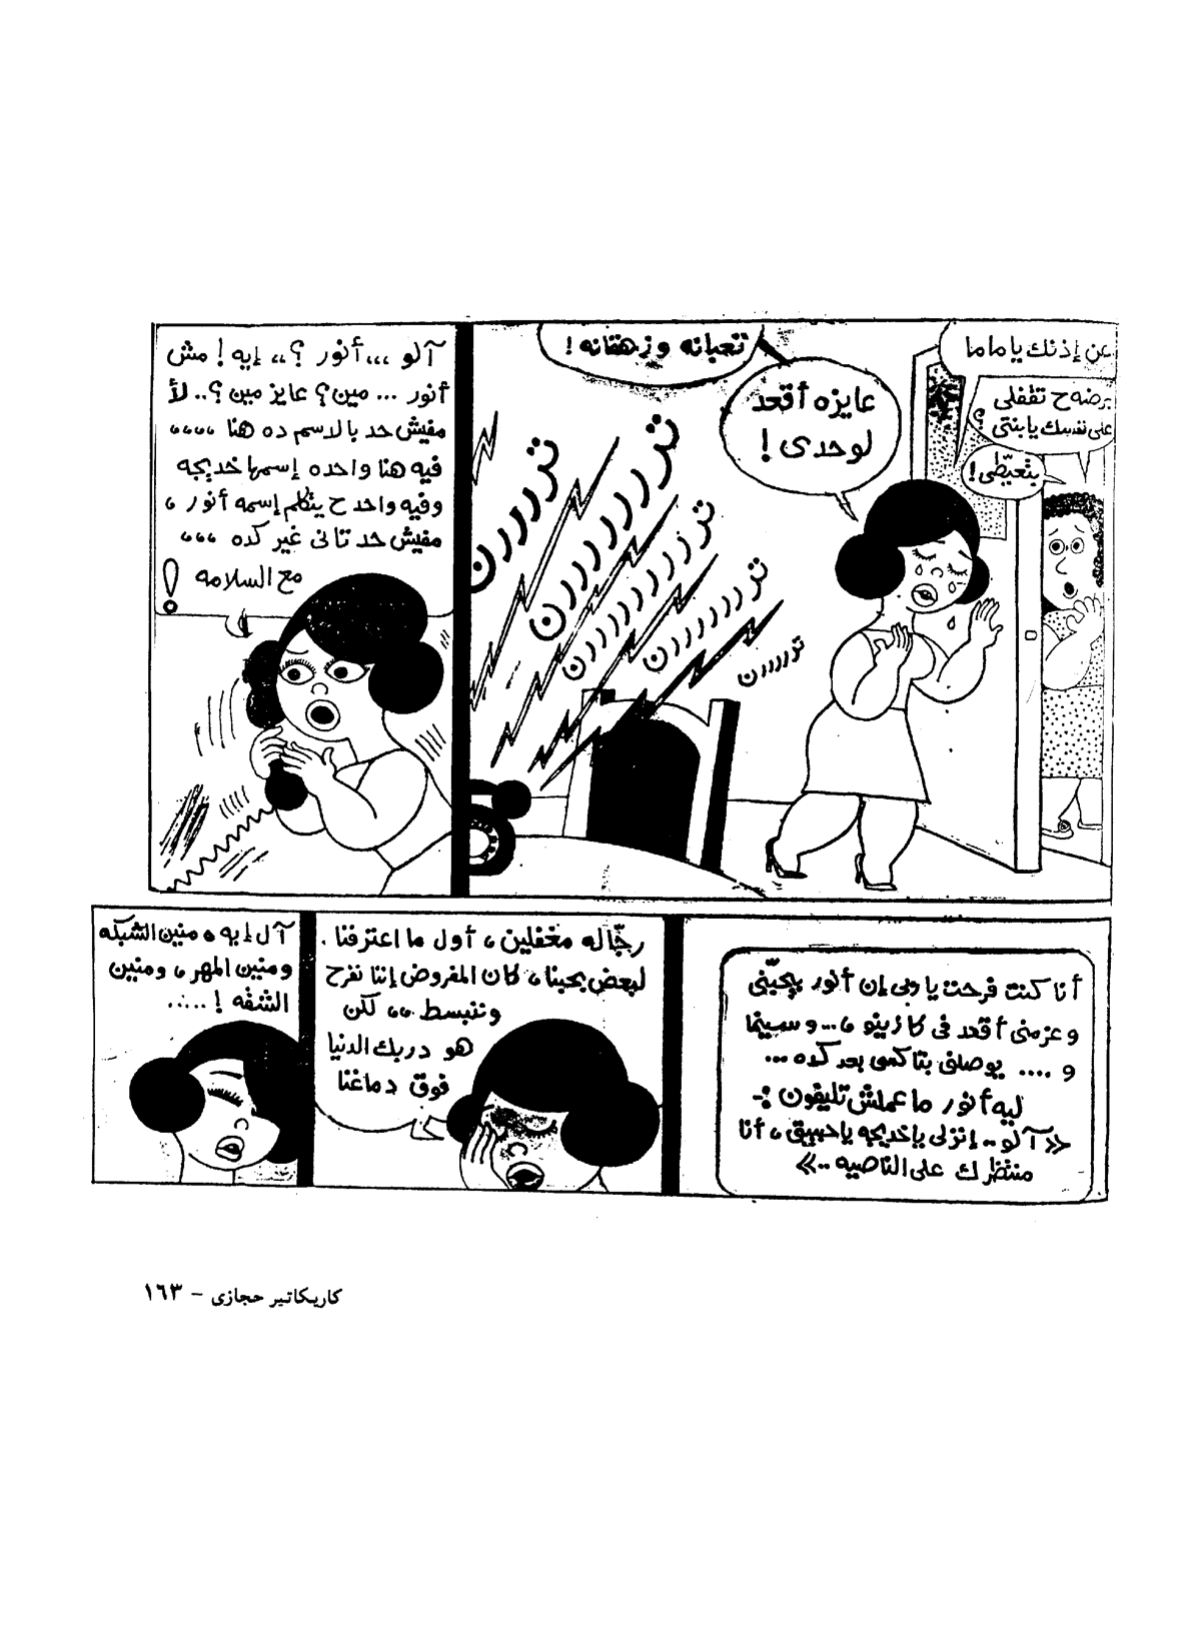 عن إذنك يا ماما
برضه ح تقفلى
على نفسك يا بنتى ؟
بتعيّطى !
عايزه أقعد
لوحدى !
تعبانه وزهقانه !
ترررررن
تررررررررن
تررررررررن
تررررررررن
ترررررن
آلو ،،، أنور ؟ ،، إيه ! مش
أنور ... مين ؟ عايز مين ؟ .. لأ
مفيش حد بالاسم ده هنا ،،،،
فيه هنا واحده إسمها خديجه
وفيه واحد ح يتكلم إسمه أنور ،
مفيش حد تانى غير كده ،،،
مع السلامه !
أنا كنت فرحت يا وبى إن أنور بيحبّنى
وعزمنى أقعد فى كازينو ،... وسينما
و .... يوصلنى بتاكسى بعد كده ...
ليه أنور ما عملش تليفون :-
« آلو .. إنزلى يا خديجه يا حبيبتى ، أنا
منتظرك على الناصيه .. »
رجّاله مغفلين ، أول ما اعترفنا .
لبعض بحبنا ، كان المفروض إننا نفرح
وننبسط ،، لكن
هو دربك الدنيا
فوق دماغنا
آل إيه ، منين الشبكه
ومنين المهر ، ومنين
الشقه ! .....
كاريكاتير حجازى - ١٦٣